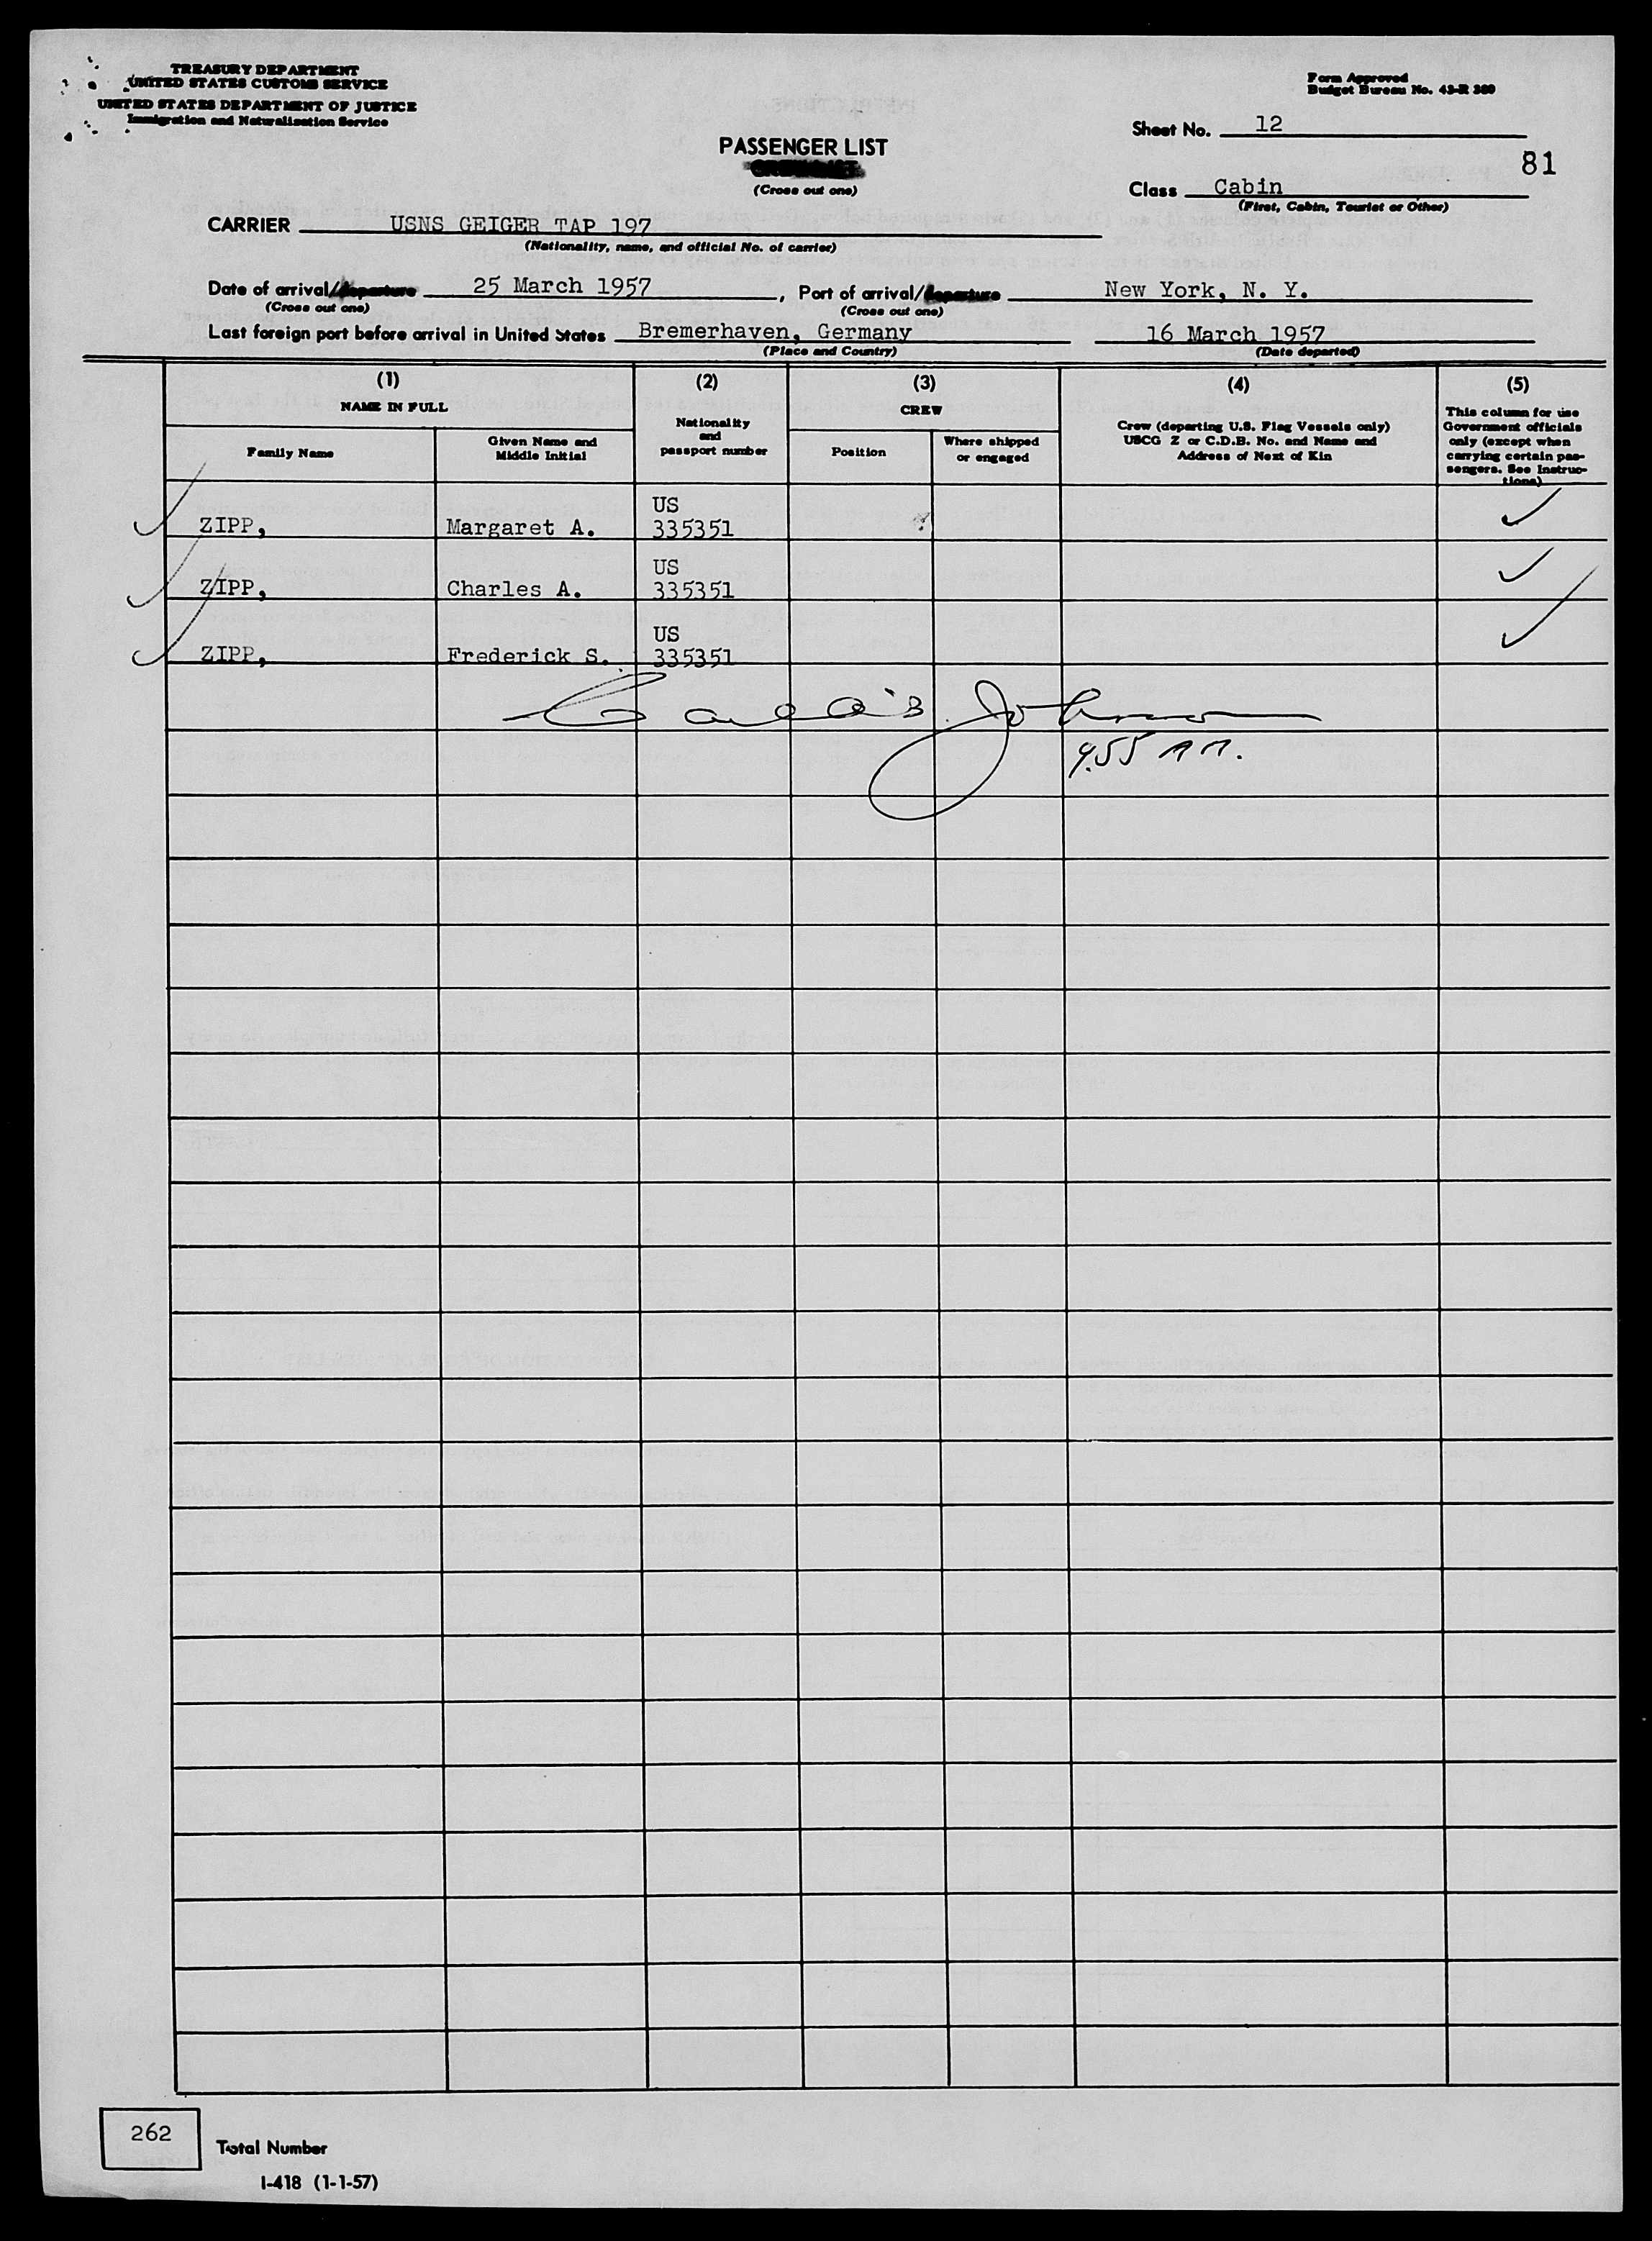 TREASURY DEPARTMENT
UNITED STATES CUSTOMS SERVICE
UNITED STATES DEPARTMENT OF JUSTICE
Immigration and Naturalization Service
Form Approved
Budget Bureau No. 43-R 380
Sheet No. 12
PASSENGER LIST
81
(Cross out one)
Class Cabin
(First, Cabin, Tourist or Other)
CARRIER USNS GEIGER TAP 197
(Nationality, name, and official No. of carrier)
Date of arrival/departure 25 March 1957, Port of arrival/departure New York, N. Y.
(Cross out one) (Cross out one)
Last foreign port before arrival in United States Bremerhaven, Germany 16 March 1957
(Place and Country) (Date departed)
(1) (2) (3) (4) (5)
NAME IN FULL
Family Name
Given Name and
Middle Initial
Nationality
and
passport number
CREW
Position
Where shipped
or engaged
Crew (departing U.S. Flag Vessels only)
USCG Z or C.D.B. No. and Name and
Address of Next of Kin
This column for use
Government officials
only (except when
carrying certain pas-
sengers. See Instruc-
tions)
US
ZIPP, Margaret A. 335351
US
ZIPP, Charles A. 335351
US
ZIPP, Frederick S. 335351
Johnson
9.55 AM.
262
Total Number
I-418 (1-1-57)